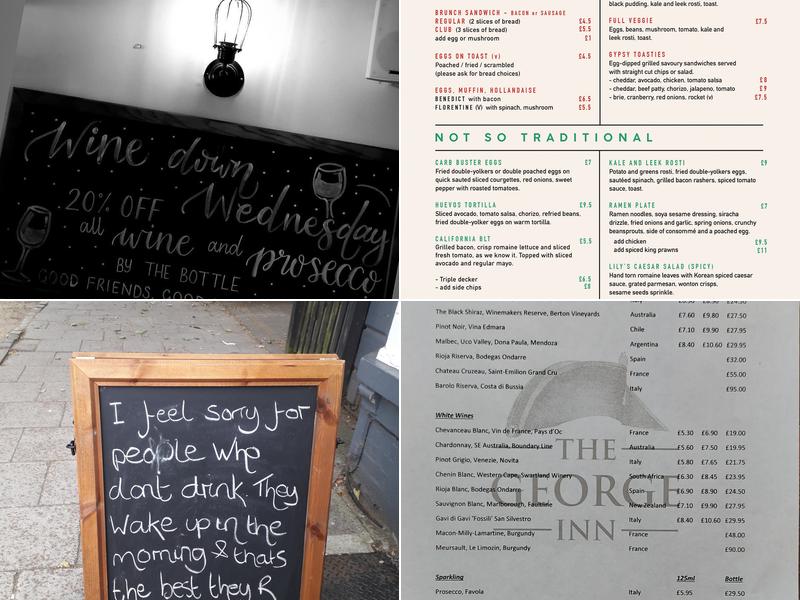 Wine down
Wednesday
20% OFF
all wine and prosecco
BY THE BOTTLE
GOOD FRIENDS, GOOD
BRUNCH SANDWICH - BACON or SAUSAGE
REGULAR (2 slices of bread) £4.5
CLUB (3 slices of bread) £5.5
add egg or mushroom £1
EGGS ON TOAST (v) £4.5
Poached / fried / scrambled
(please ask for bread choices)
EGGS, MUFFIN, HOLLANDAISE
BENEDICT with bacon £6.5
FLORENTINE (V) with spinach, mushroom £5.5
black pudding, kale and leek rosti, toast.
FULL VEGGIE £7.5
Eggs, beans, mushroom, tomato, kale and
leek rosti, toast.
GYPSY TOASTIES
Egg-dipped grilled savoury sandwiches served
with straight cut chips or salad.
- cheddar, avocado, chicken, tomato salsa £8
- cheddar, beef patty, chorizo, jalapeno, tomato £9
- brie, cranberry, red onions, rocket (v) £7.5
NOT SO TRADITIONAL
CARB BUSTER EGGS £7
Fried double-yolkers or double poached eggs on
quick sauted sliced courgettes, red onions, sweet
pepper with roasted tomatoes.
HUEVOS TORTILLA £9.5
Sliced avocado, tomato salsa, chorizo, refried beans,
fried double-yolker eggs on warm tortilla.
CALIFORNIA BLT £5.5
Grilled bacon, crisp romaine lettuce and sliced
fresh tomato, as we know it. Topped with sliced
avocado and regular mayo.
- Triple decker £6.5
- add side chips £8
KALE AND LEEK ROSTI £9
Potato and greens rosti, fried double-yolkers eggs,
sautéed spinach, grilled bacon rashers, spiced tomato
sauce, toast.
RAMEN PLATE £7
Ramen noodles, soya sesame dressing, siracha
drizzle, fried onions and garlic, spring onions, crunchy
beansprouts, side of consommé and a poached egg.
add chicken £9.5
add spiced king prawns £11
LILY'S CAESAR SALAD (SPICY)
Hand torn romaine leaves with Korean spiced caesar
sauce, grated parmesan, wonton crisps,
sesame seeds sprinkle.
I feel sorry for
people who
dont drink. They
wake up in the
morning & thats
the best they R
The Black Shiraz, Winemakers Reserve, Berton Vineyards Australia £7.60 £9.80 £27.50
Pinot Noir, Vina Edmara Chile £7.10 £9.90 £27.95
Malbec, Uco Valley, Dona Paula, Mendoza Argentina £8.40 £10.60 £29.95
Rioja Riserva, Bodegas Ondarre Spain £32.00
Chateau Cruzeau, Saint-Emilion Grand Cru France £55.00
Barolo Riserva, Costa di Bussia Italy £95.00
White Wines
Chevanceau Blanc, Vin de France, Pays d'Oc France £5.30 £6.90 £19.00
Chardonnay, SE Australia, Boundary Line Australia £5.60 £7.50 £19.95
Pinot Grigio, Venezie, Novita Italy £5.80 £7.65 £21.75
Chenin Blanc, Western Cape, Swartland Winery South Africa £6.30 £8.45 £23.95
Rioja Blanco, Bodegas Ondarre Spain £6.90 £8.90 £24.50
Sauvignon Blanc, Marlborough, Faultline New Zealand £7.10 £9.90 £27.95
Gavi di Gavi 'Fossili' San Silvestro Italy £8.40 £10.60 £29.95
Macon-Milly-Lamartine, Burgundy France £48.00
Meursault, Le Limozin, Burgundy France £90.00
THE
GEORGE
INN
Sparkling 125ml Bottle
Prosecco, Favola Italy £5.95 £29.50